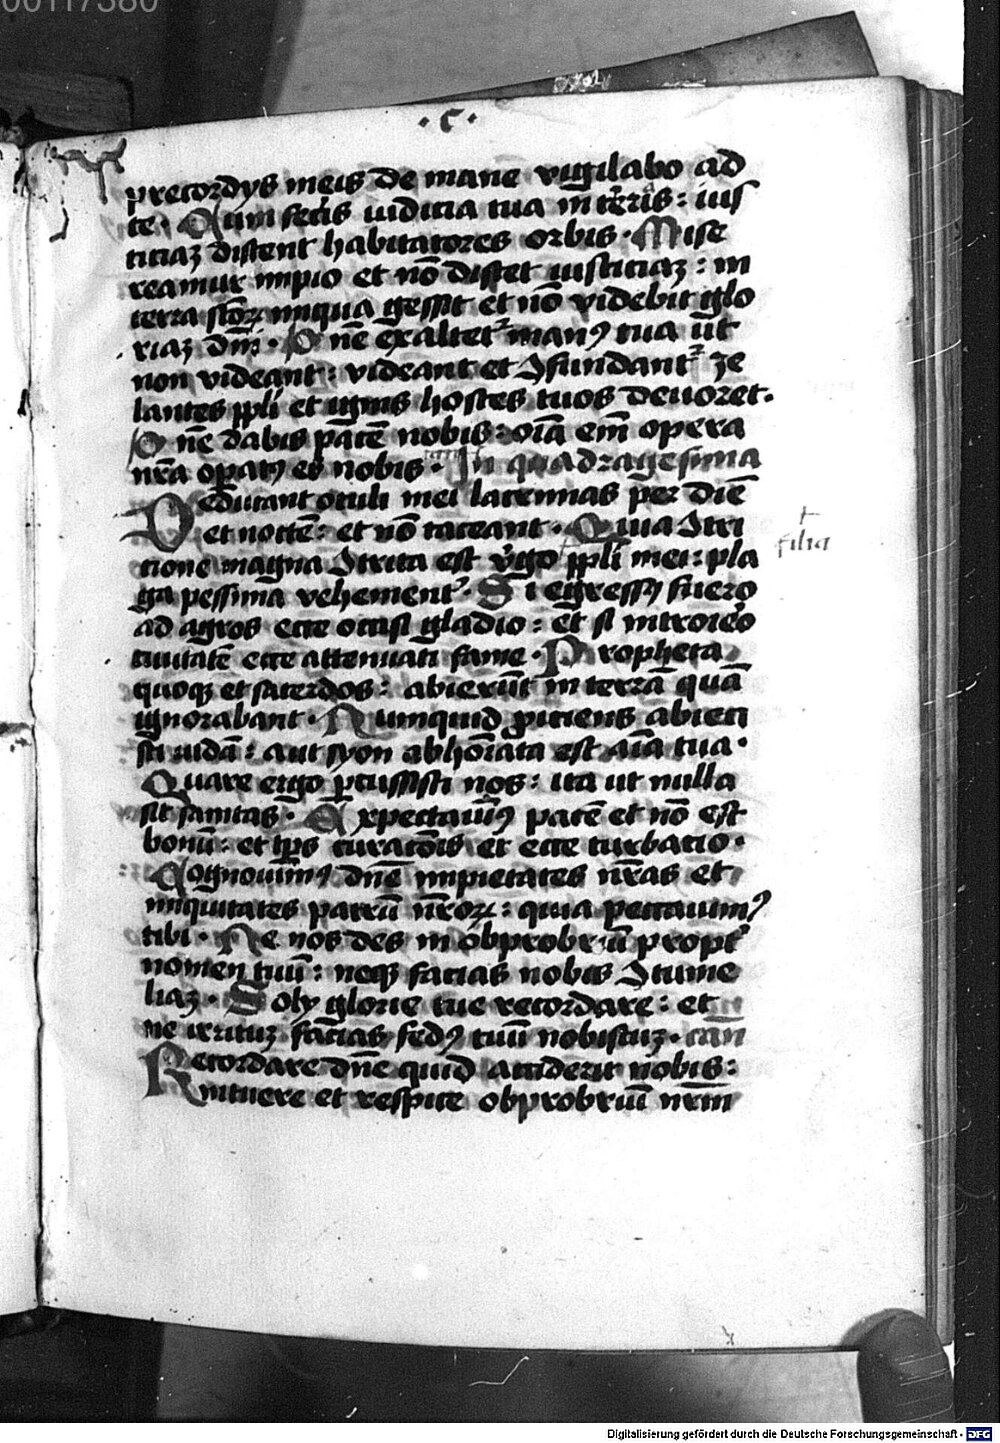 00117380
· c ·
precordijs meis de mane vigilabo ad
te · Cum feceris iudicia tua in terris : ius
ticiaz discent habitatores orbis · Mise
reamur impio et nō discet iusticiaz : in
terra sctoꝝ iniqua gessit et nō videbit glo
riaz dm̄i · Dn̄e exaltetᷣ manꝰ tua ut
non videant : videant et ɔfundantᷣ ze
lantes ppl̄i et ignis hostes tuos deuoret ·
Dn̄e dabis pacē nobis : oīa em̄ opera
nr̄a opatꝰ es nobis · In quadragesima
Deducant oculi mei lacrimas per diē
et noctē : et nō taceant · Quia ɔtri
tione magna ɔtrita est v̓go ppl̄i mei : pla
filia
ga pessima vehementᷣ · Si egressꝰ fuero
ad agros ecce occisi gladio : et si introiero
ciuitatē ecce attenuati fame · Propheta
quoqꝫ et sacerdos : abierūt in terrā quā
ignorabant · Numquid ꝓiciens abieci
sti iudā : aut syon abhoīata est aīa tua ·
Quare ergo ꝑcussisti nos : ita ut nulla
sit sanitas · Expectauimꝰ pacē et nō est
bonū : et tp̄s curatōis et ecce turbatio ·
Cognouimꝰ dn̄e impietates nr̄as et
iniquitates patrū nr̄oꝝ : quia peccauimꝰ
tibi · Ne nos des in obprobriū propt̓
nomen tuū : neqꝫ facias nobis ɔtume
liaz · Solij glorie tue recordare : et
ne irrituz facias fedꝰ tuū nobiscuz · can̄
Recordare dn̄e quid acciderit nobis :
intuere et respice obprobriū nrm̄
Digitalisierung gefördert durch die Deutsche Forschungsgemeinschaft - DFG